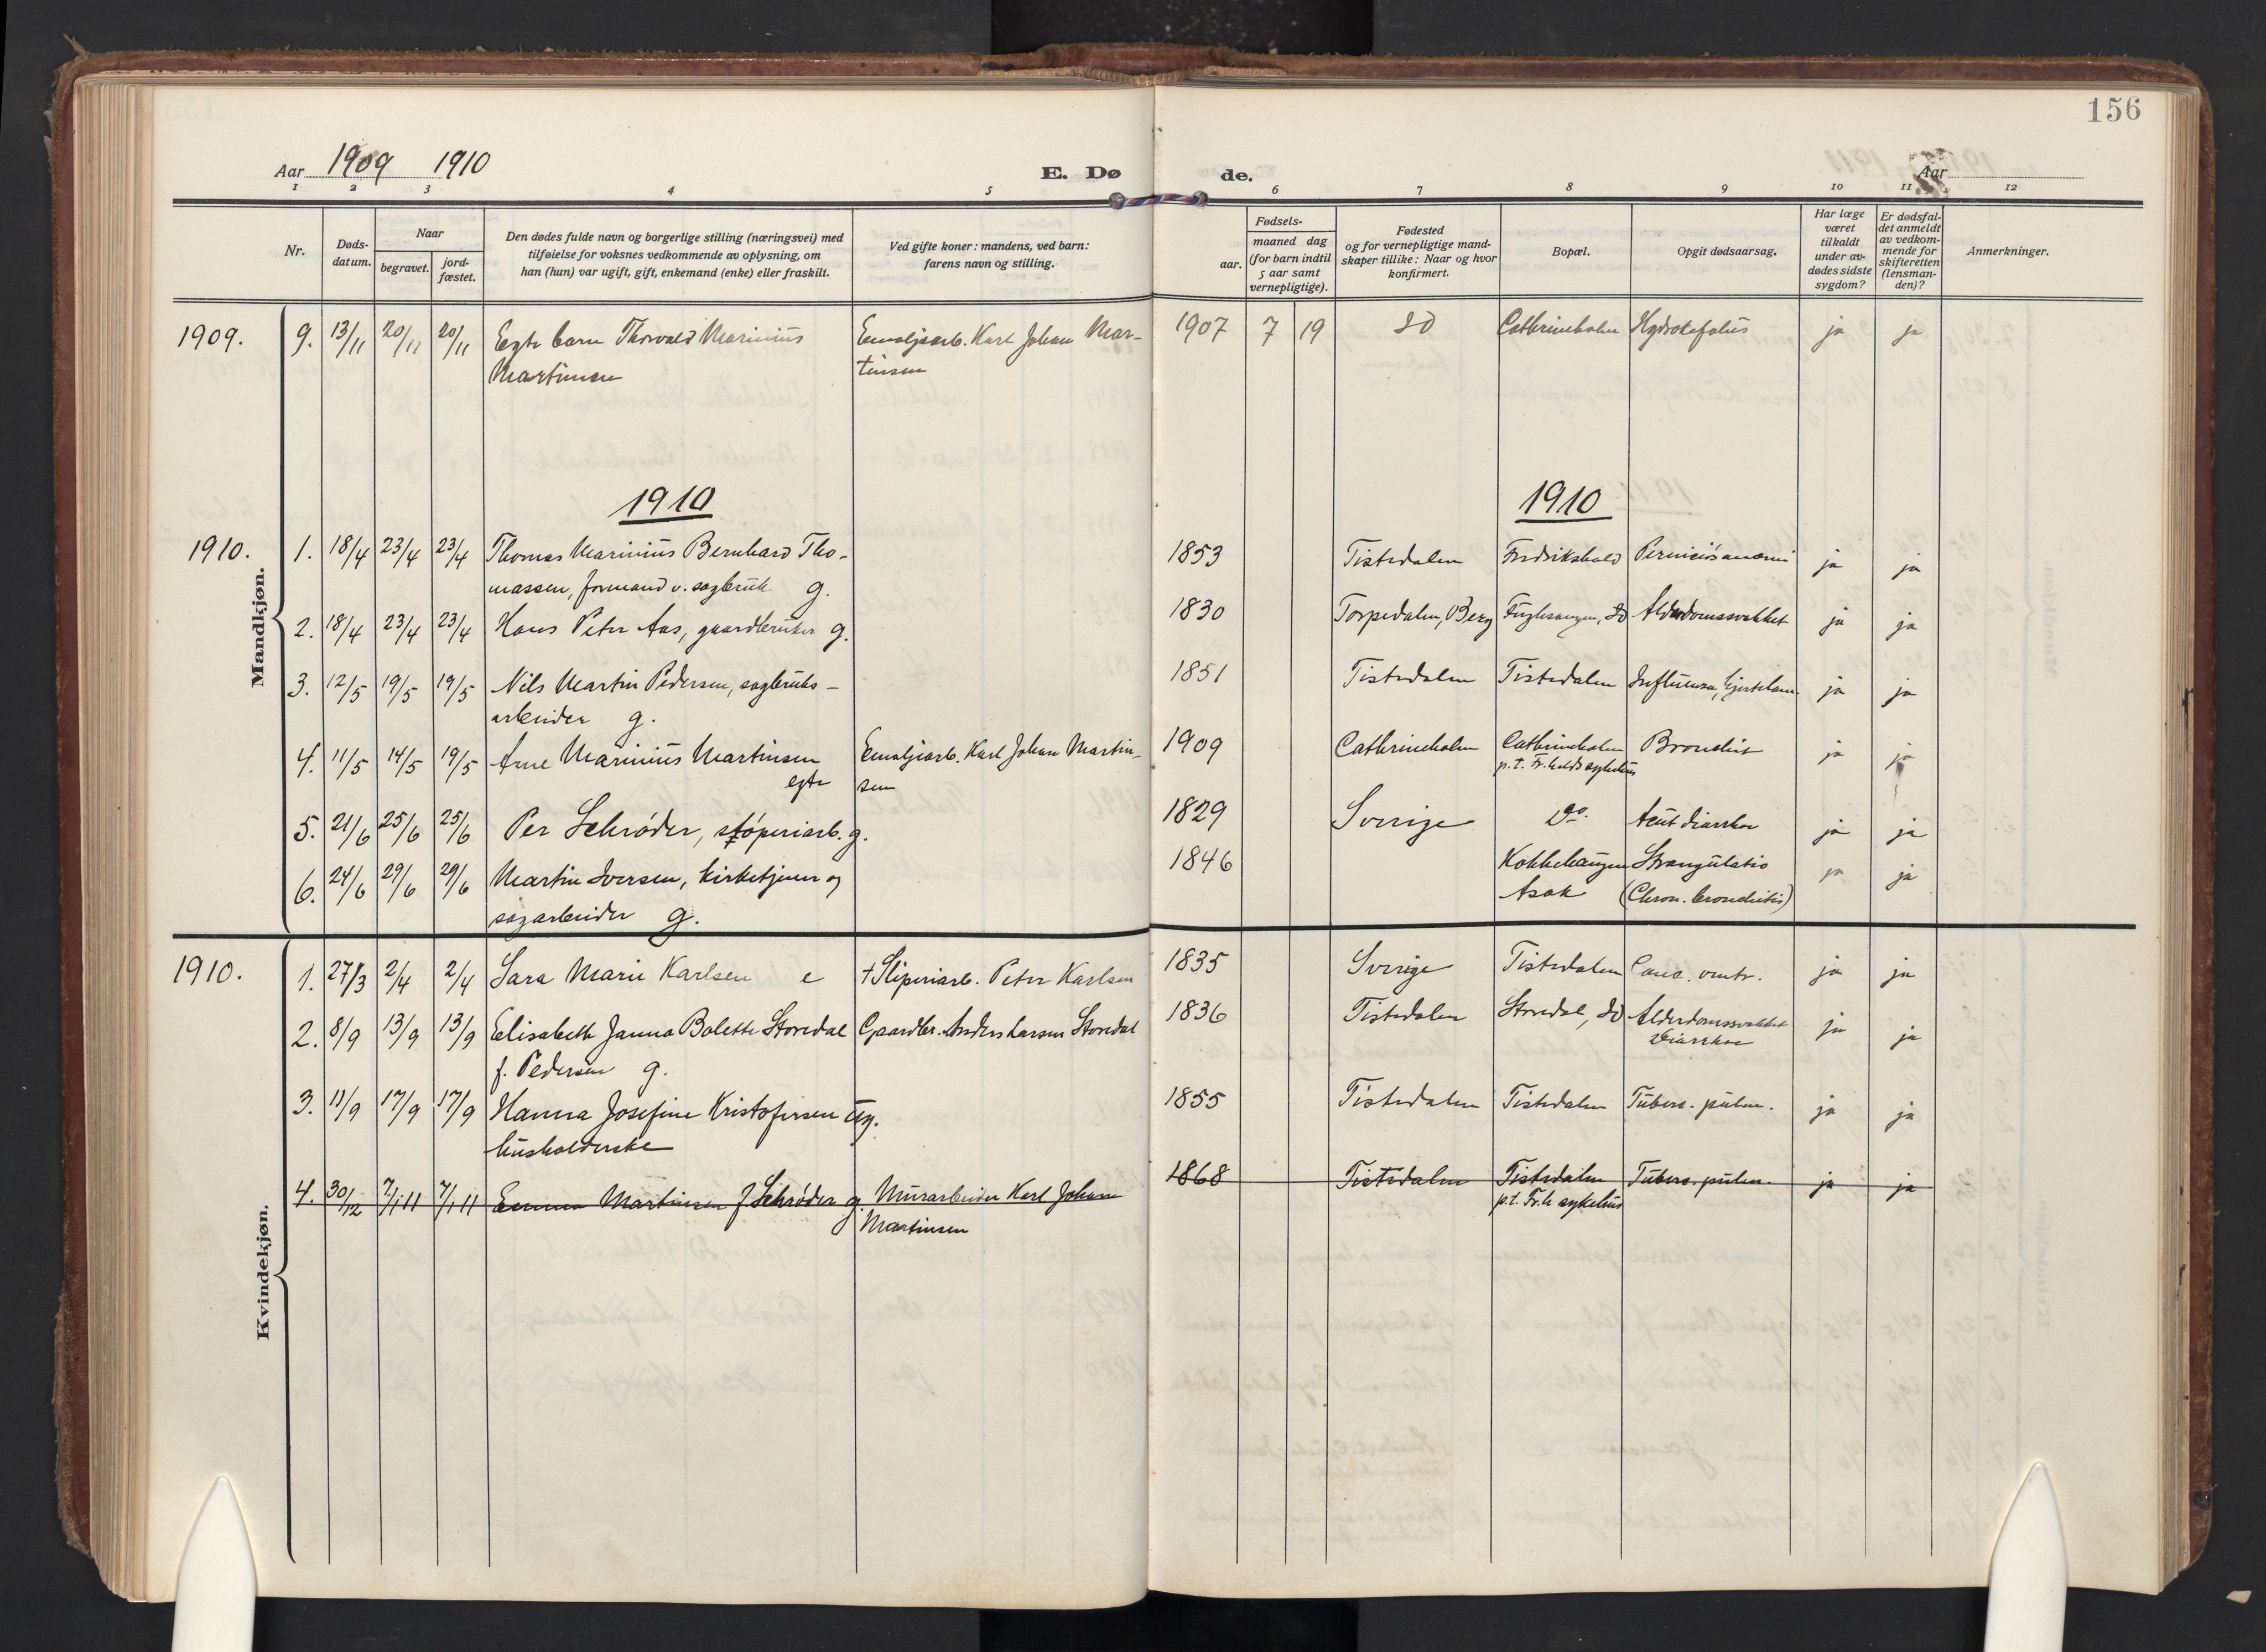 156
Aar 1909 1910
E. Dø
de.
Aar
1 2 3 4 5 6 7 8 9 10 11 12
Nr.
Døds-
datum.
Naar
begravet.
jord-
fæstet.
Den dødes fulde navn og borgerlige stilling (næringsvei) med
tilføielse for voksnes vedkommende av oplysning, om
han (hun) var ugift, gift, enkemand (enke) eller fraskilt.
Ved gifte koner: mandens, ved barn:
farens navn og stilling.
Fødsels-
aar.
maaned dag
(for barn indtil
5 aar samt
vernepligtige).
Fødested
og for vernepligtige mand-
skaper tillike: Naar og hvor
konfirmert.
Bopæl.
Opgit dødsaarsag.
Har læge
været
tilkaldt
under av-
dødes sidste
sygdom?
Er dødsfal-
det anmeldt
av vedkom-
mende for
skifteretten
(lensman-
den)?
Anmerkninger.
1909. 9. 13/11 20/11 20/11 Egte barn Thorvald Marinius Emaljearb. Karl Johan Mar- 1907 7 19 Id Cathrineholm Hydrokefalus ja ja
Martinsen tinsen
1910 1910
Mandkjøn.
1910. 1. 18/4 23/4 23/4 Thomas Marinius Bernhard Tho- 1853 Tistedalen Fredrikshald Perniciøs anæmi ja ja
massen, formand v. sagbruk g.
2. 18/4 23/4 23/4 Hans Peter Aas, gaardbruker g. 1830 Torpedalen, Berg Id Alderdomssvakhet ja ja
3. 12/5 19/5 19/5 Nils Martin Pedersen, sagbruks- 1851 Tistedalen Tistedalen Influenza, ja ja
arbeider g.
4. 11/5 14/5 19/5 Arne Marinius Martinsen Emaljearb. Karl Johan Martin- 1909 Cathrineholm Cathrineholm Bronchit ja ja
egte sen p.t. Fr.halds sykehus
5. 21/6 25/6 25/6 Per Schrøder, støperiarb. g. 1829 Sverige do. Acut diarrhoe ja ja
6. 24/6 29/6 29/6 Martin Iversen, kirketjener og 1846 Kokkehaugen Strangulatio ja ja
sagarbeider g. Asak (Chron. bronchitis)
Kvindekjøn.
1910. 1. 27/3 2/4 2/4 Sara Marie Karlsen e †Sliperiarb. Peter Karlsen 1835 Sverige Tistedalen Canc. ventr. ja ja
2. 8/9 13/9 13/9 Elisabeth Janna Bolette Storedal Gaardbr. Anders Larsen Storedal 1836 Tistedalen Storedal, Id Alderdomssvakhet ja ja
f. Pedersen g. Diarrhoe
3. 11/9 17/9 17/9 Hanna Josefine Kristofersen ug. 1855 Tistedalen Tistedalen Tuberc. pulm. ja ja
husholderske
4. 30/12 7/1 11 7/1 11 Emma Martinsen f. Schrøder g. Murarbeider Karl Johan 1868 Tistedalen Tistedalen Tuberc. pulm. ja ja
Martinsen p.t. Fr.h sykehus